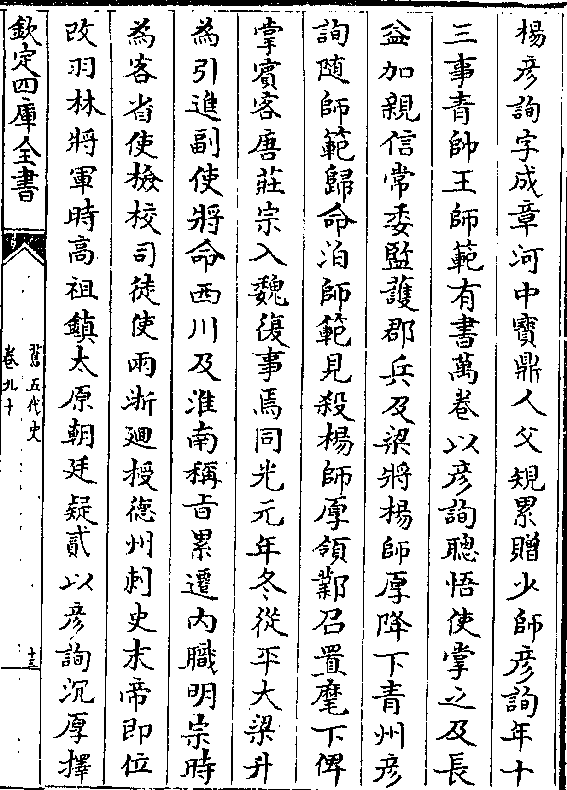 楊彦詢字成章河中寶鼎人父規累贈少師彦詢年十
三事青帥王師範有書萬卷以彦詢聰悟使掌之及長
益加親信常委監護郡兵及梁將楊師厚降下青州彦
詢随師範歸命洎師範見殺楊師厚領鄴召置麾下俾
掌賓客唐莊宗入魏復事焉同光元年冬從平大梁升
為引進副使將命西川及淮南稱㫖累遷内職明宗時
為客省使檢校司徒使兩浙廻授德州刺史末帝即位
改羽林將軍時髙祖鎮太原朝廷疑貳以彦詢沉厚擇
欽定四庫全書
舊五代史
卷九十
十三